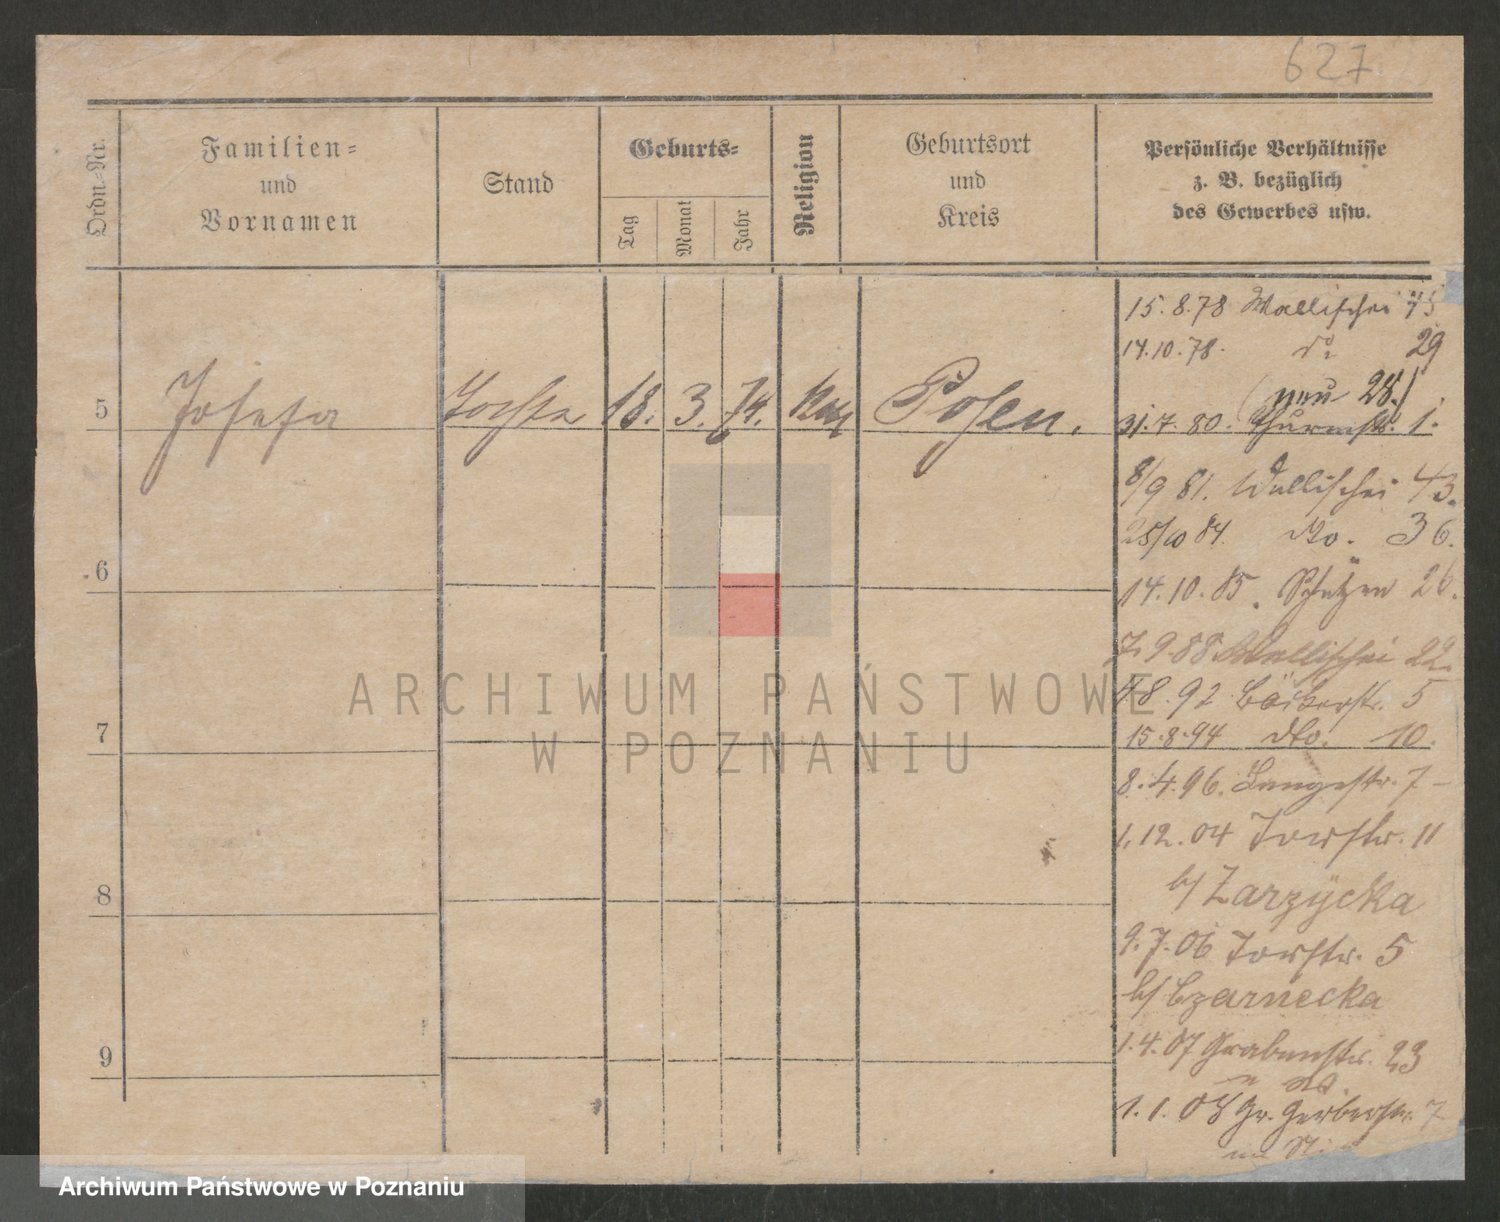 627
Ordn.-Nr.
Familien-
und
Vornamen
Stand
Geburts-
Tag
Monat
Jahr
Religion
Geburtsort
und
Kreis
Persönliche Verhältnisse
z. B. bezüglich
des Gewerbes usw.
15.8.78 Wallischei
14.10.78. do 29
(neu 28.)
5 Josefa Tochter 18. 3. 74. Kath Posen.
31.7.80. Thurmstr. 1.
8/9 81. Wallischei 43.
25/10 84. do. 36.
6
14.10.85. Schützen 26.
7.9.88 Wallischei 22.
8.92 Bäckerstr. 5
7
15.8.94 dto. 10.
8.4.96. Langestr. 7
1.12.04 Torstr. 11
8
b/ Zarzycka
9.7.06 Torstr. 5
b/ Czarnecka
9
1.4.07 Grabenstr. 23
1.1.08 Gr. Gerberstr. 7
ARCHIWUM PAŃSTWOWE
W POZNANIU
Archiwum Państwowe w Poznaniu